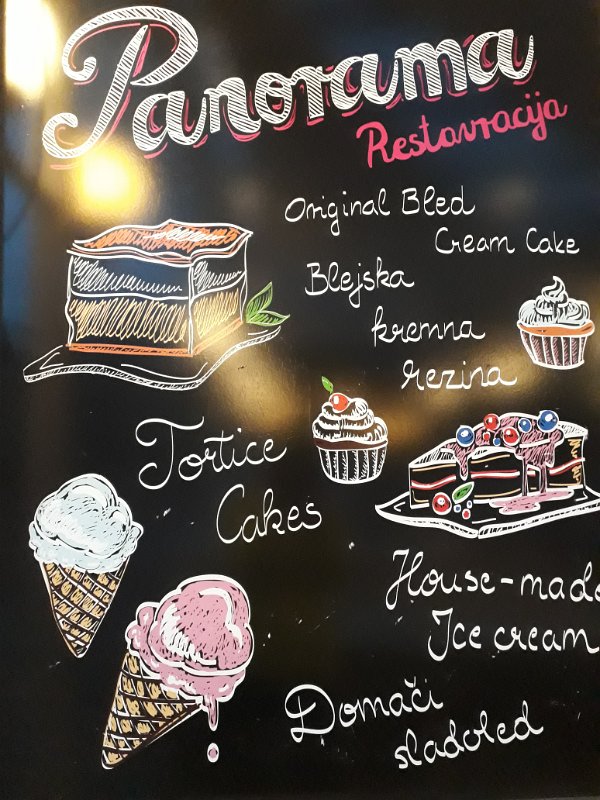 Panorama
Restavracija
Original Bled
Cream Cake
Blejska
kremna
rezina
Tortice
Cakes
House-made
Ice cream
Domači
sladoled